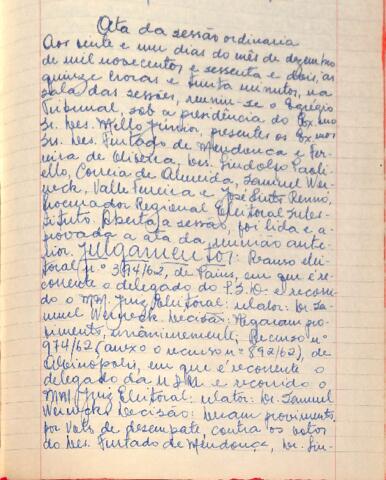 Ata da sessão ordinaria
Aos vinte e um dias do mês de dezembro
de mil novecentos e sessenta e dois, as
quinze horas e trinta minutos, na
sala das sessões, reuniu-se o Egrégio
Tribunal, sob a presidência do Exmo
Sr. Des. Mello Junior, presentes os Exmos
Srs. Des. Furtado de Mendonça e Fer-
reira de Oliveira, Drs. Lindolfo Paoli-
ello, Correia de Almeida, Samuel Wer-
neck, Valle Ferreira e José Pinto Renno,
Procurador Regional Eleitoral Subs-
tituto. Aberta a sessão, foi lida e a-
provada a ata da reunião ante-
rior. Julgamentos: Recurso elei-
toral nº 374/62, de Pains, em que é re-
corrente o delegado do P.S.D. e recorri-
do o MM. Juiz Eleitoral: relator: Dr. Sa-
muel Werneck. Decisão: Negaram pro-
vimento, unânimemente; Recurso nº
974/62 (anexo o recurso nº 892/62), de
em que é recorrente o
delegado da U.D.N. e recorrido o
MM. Juiz Eleitoral: relator: Dr. Samuel
Werneck. Decisão: Deram provimento,
por voto de desempate, contra os votos
do Des. Furtado de Mendonça, Dr. Lin-